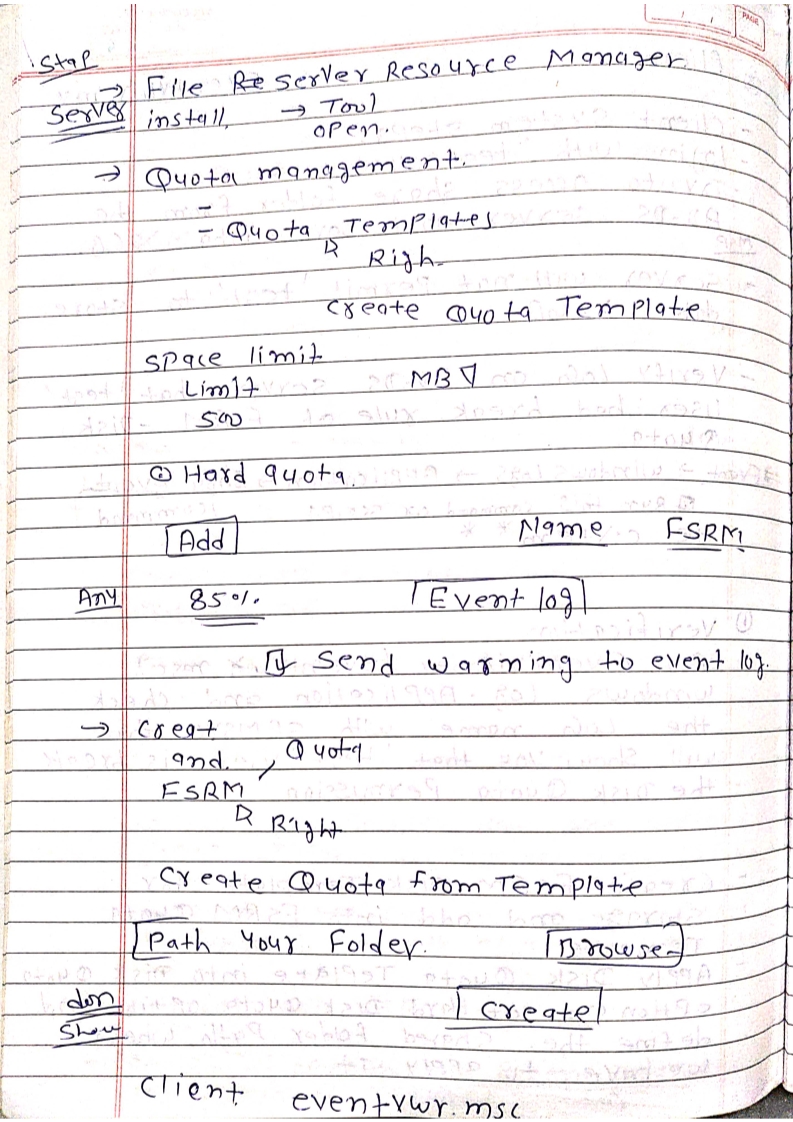 PAGE
Stap
→ File Server Resource Manager
Server install, → Tool
open.
→ Quota management.
-
- Quota Templates
Righ-
create Quota Template
space limit
Limit MB ▽
500
⊙ Hard quota.
Add Name FSRM
Any 85% Event log
☑ Send warning to event log.
→ Creat
and. , Quota
FSRM
Right
Create Quota from Template
Path your Folder. Browse-
don Create
Show
Client eventvwr.msc